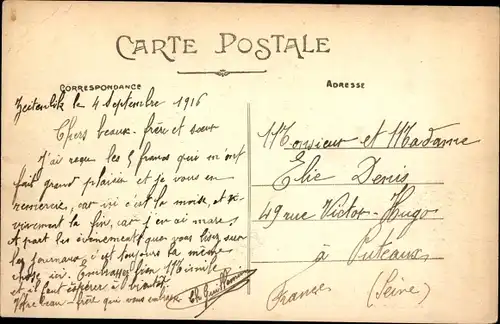 CARTE POSTALE
CORRESPONDANCE
ADRESSE
Zeitenlik le 4 Septembre 1916
Chers beaux-frère et sœur
J'ai reçu les 5 francs qui m'ont
fait grand plaisir et je vous en
remercie, car ici c'est la mort, et
vivement la fin, car j'en ai mare.
A part les évènements que vous lisez sur
les journaux, c'est toujours la même
chose ici. Embrassez bien Mimile
et il faut espérer à bientôt
Votre beau-frère qui vous embrasse
Monsieur et Madame
Elie Denis
49 rue Victor-Hugo
à Puteaux
France (Seine)